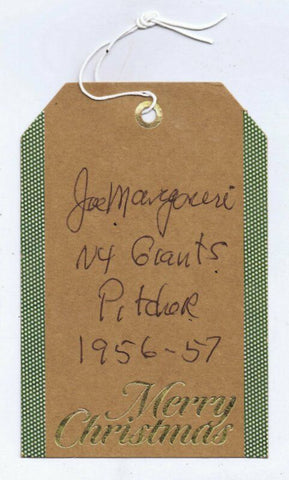 Joe Margoneri
NY Giants
Pitcher
1956-57
Merry
Christmas